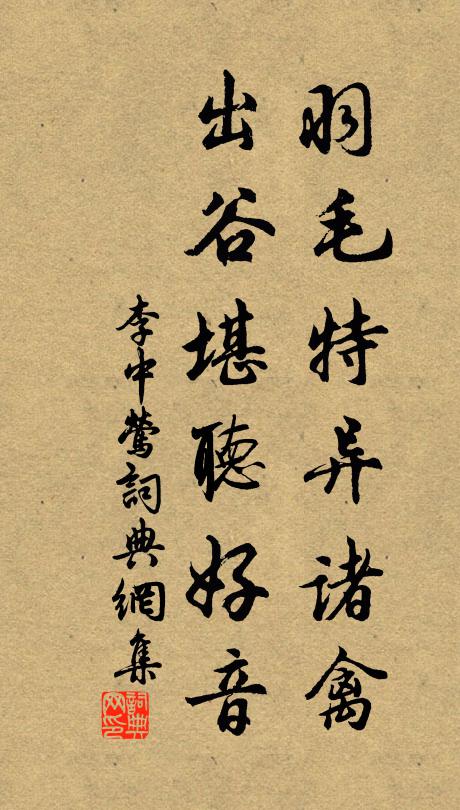 羽毛特异諸禽
出谷堪聽好音
李中鶯詞典網集
詞典
网印